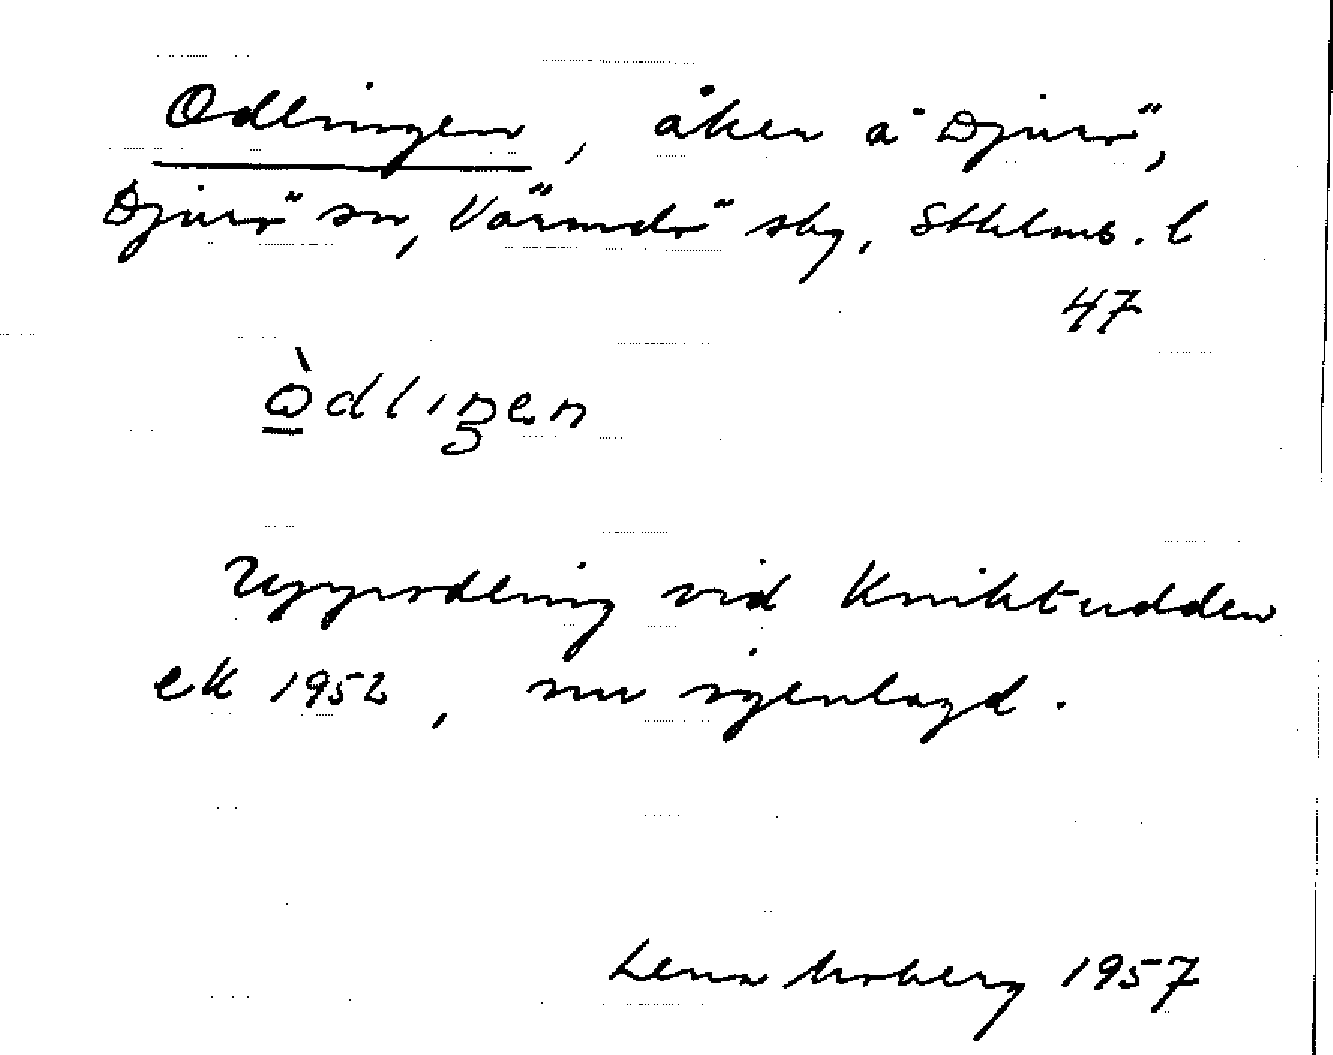 Odlingen, åker å Djurö,
Djurö sn, Värmdö sbg, Sthlms. l
47
ò̱dliŋen
Uppodling vid Kniktudden
ek 1952, nu igenlagd.
Lena Moberg 1957